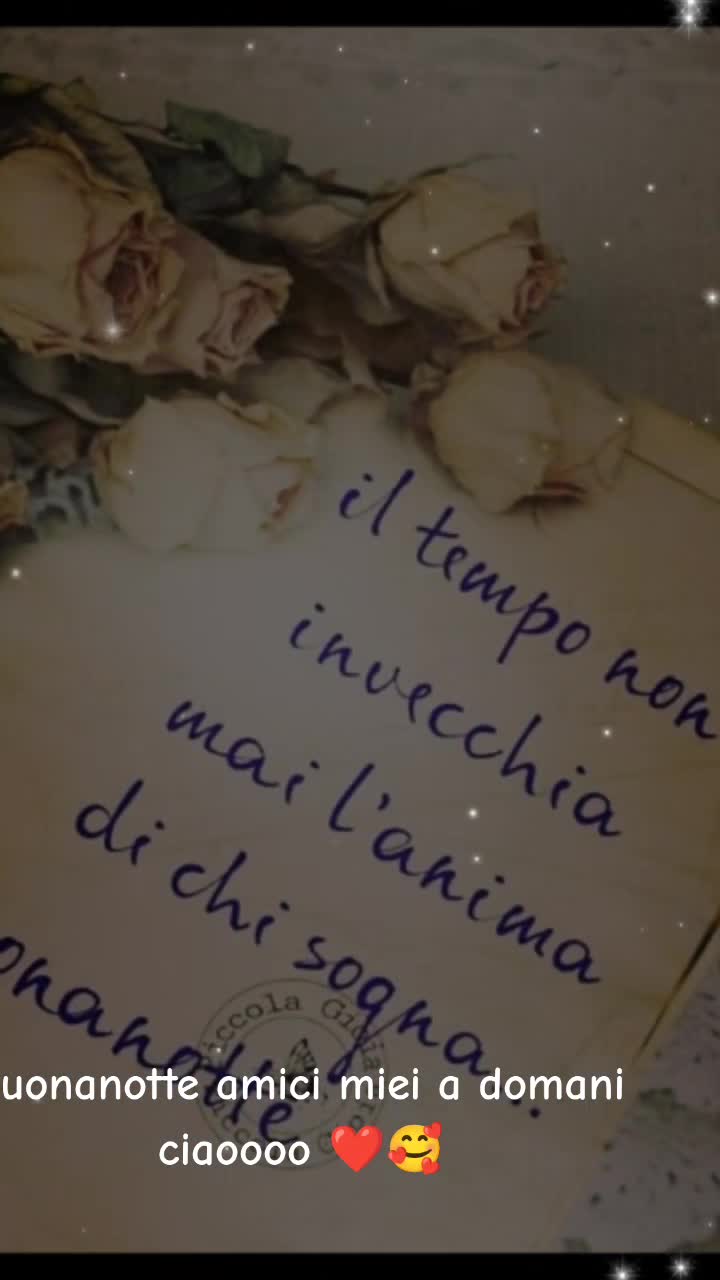 il tempo non
invecchia
mai l'anima
di chi sogna...
onanotte
Piccola Gioia
uonanotte amici miei a domani
ciaoooo ❤️🥰